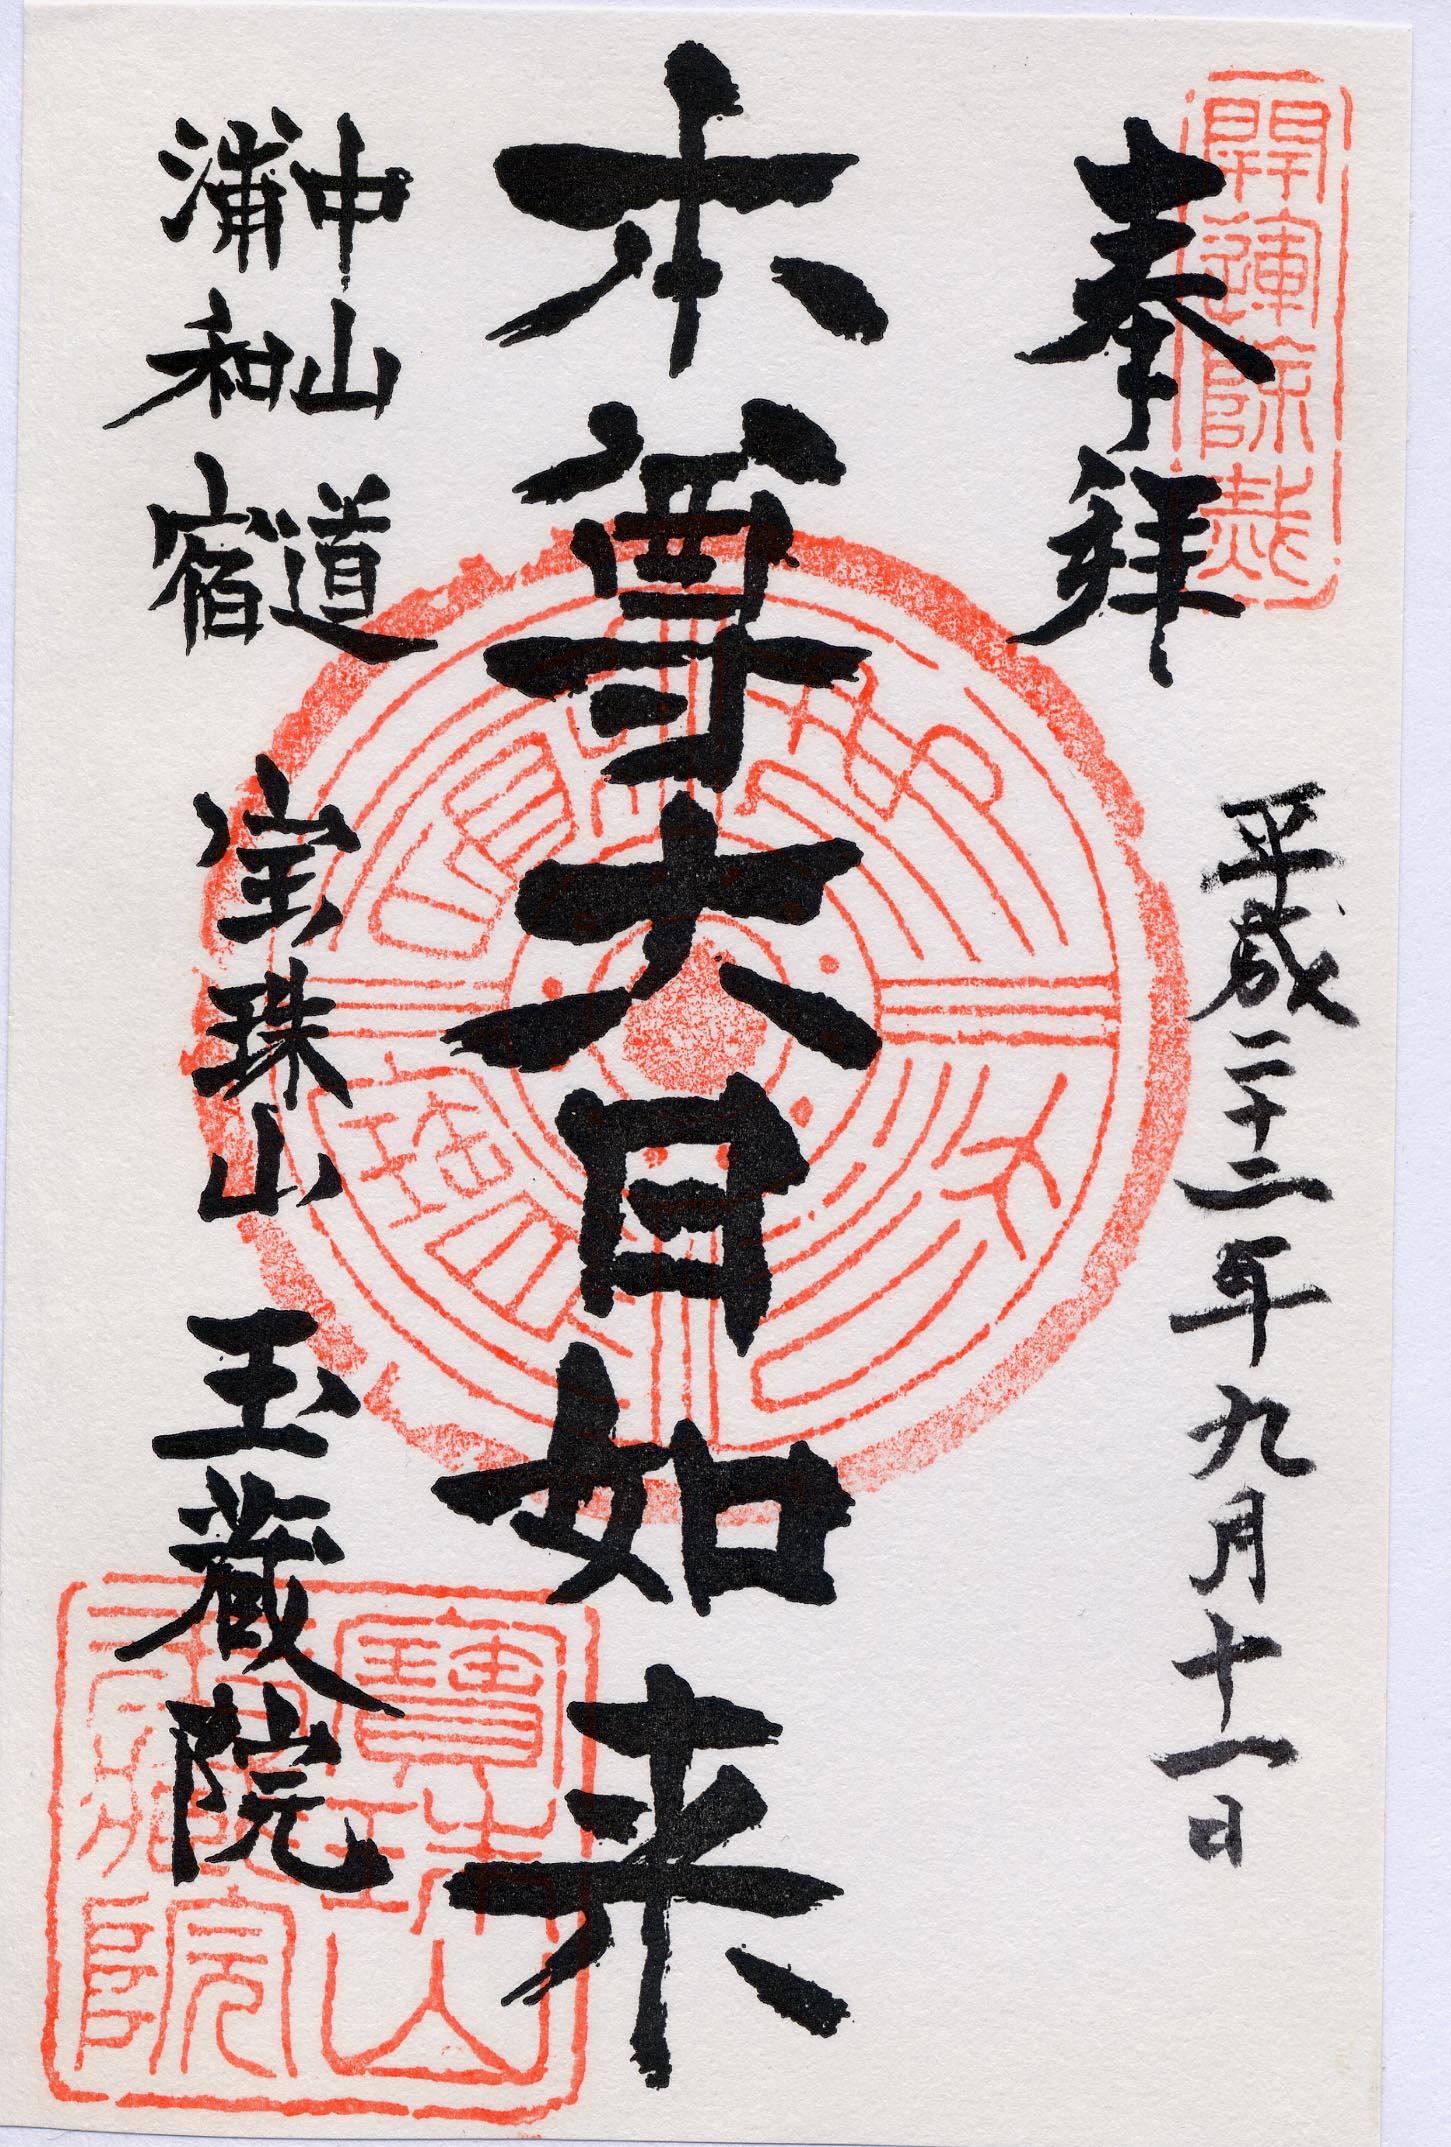 開運除烖
奉拝
平成二十二年九月十一日
本尊大日如来
中山道
浦和宿
宝珠山 玉蔵院
寶珠山
玉藏院